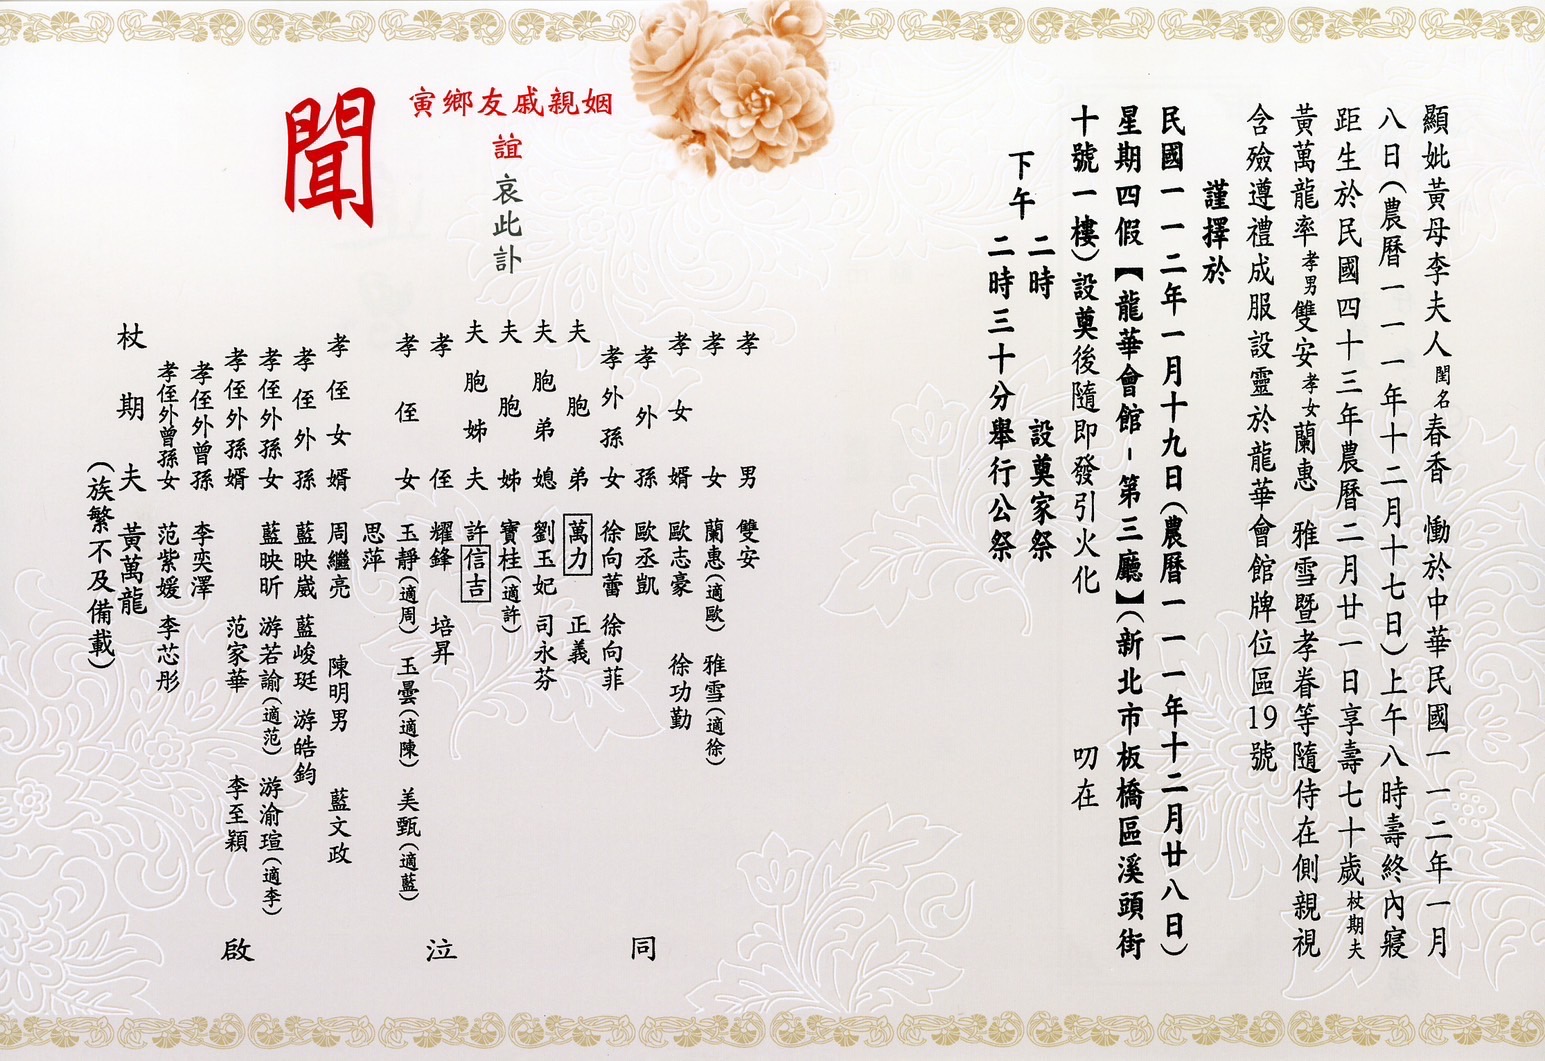 顯妣黃母李夫人閨名春香　慟於中華民國一一二年一月
八日(農曆一一一年十二月十七日)上午八時壽終內寢
距生於民國四十三年農曆二月廿一日享壽七十歲杖期夫
黃萬龍率孝男雙安孝女蘭惠　雅雪暨孝眷等隨侍在側親視
含殮遵禮成服設靈於龍華會館牌位區19號
謹擇於
民國一一二年一月十九日(農曆一一一年十二月廿八日)
星期四假【龍華會館-第三廳】(新北市板橋區溪頭街
十號一樓)設奠後隨即發引火化　叨在
下午
二時　設奠家祭
二時三十分舉行公祭
姻親戚友鄉寅
誼
哀此訃
聞
孝男　雙安
孝女　蘭惠(適歐)　雅雪(適徐)
孝女婿　歐志豪　徐功勤
孝外孫　歐丞凱
孝外孫女　徐向蕾　徐向菲
夫胞弟　萬力　正義
夫胞弟媳　劉玉妃　司永芬
夫胞姊　寶桂(適許)
夫胞姊夫　許信吉
孝侄　耀鋒　培昇
孝侄女　玉靜(適周)　玉曇(適陳)　美甄(適藍)
思萍
孝侄女婿　周繼亮　陳明男　藍文政
孝侄外孫　藍映崴　藍峻珽　游皓鈞
孝侄外孫女　藍映昕　游若諭(適范)　游渝瑄(適李)
孝侄外孫婿　范家華　李至穎
孝侄外曾孫　李奕澤
孝侄外曾孫女　范紫媛　李芯彤
杖期夫　黃萬龍
(族繁不及備載)
同　泣　啟